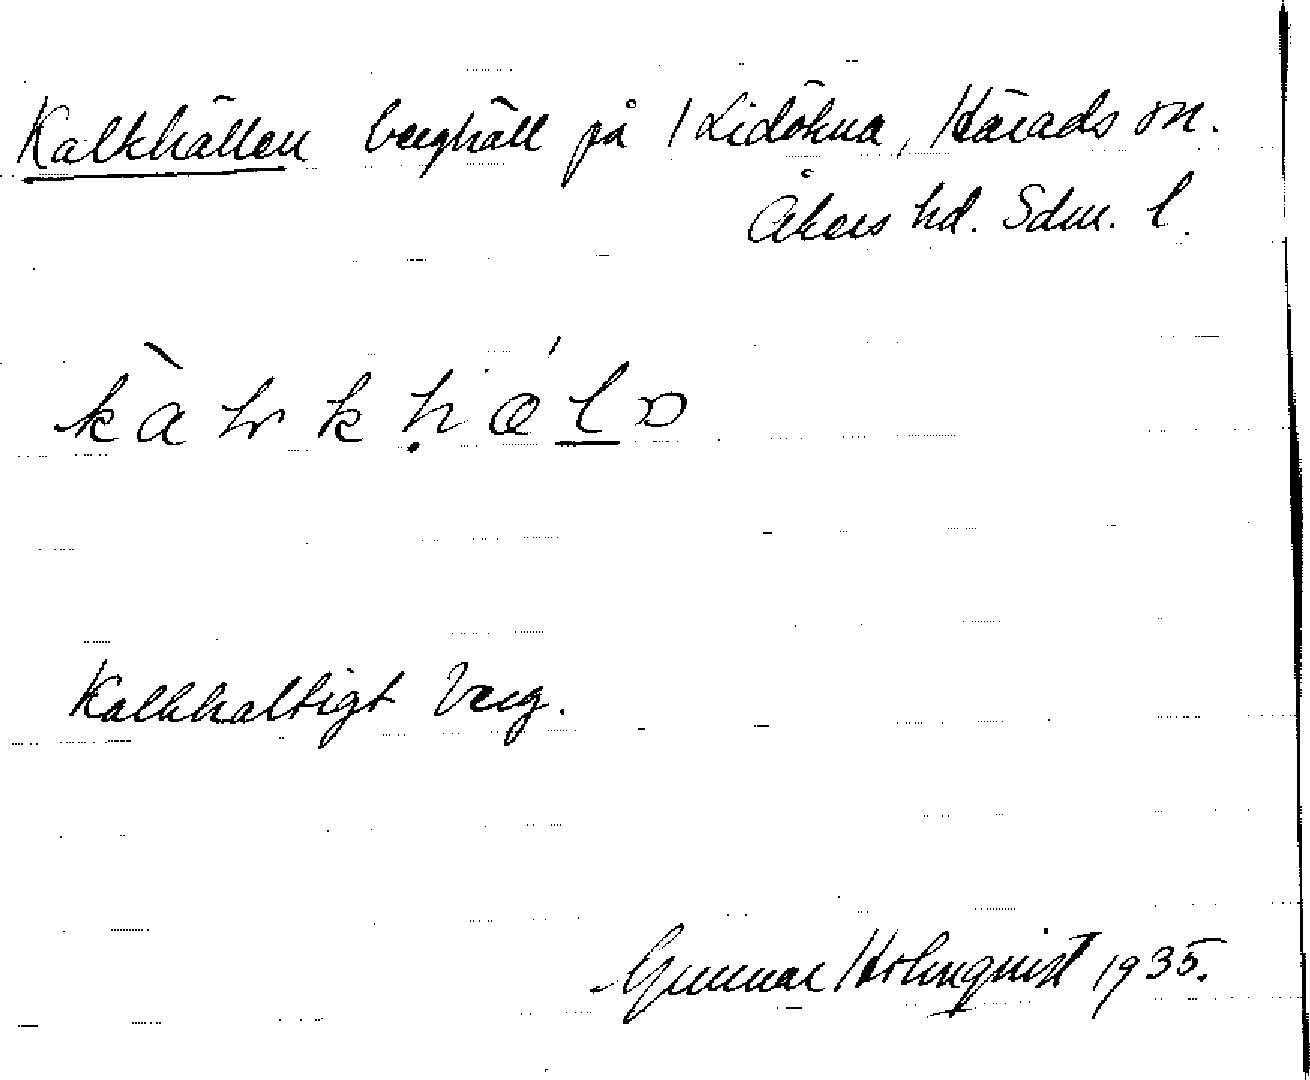 Kalkhällen berghäll på Lidökna, Härads sn.
Åkers hd. Sdm. l.
Kalkhaltigt berg.
Gunnar Holmquist 1935.